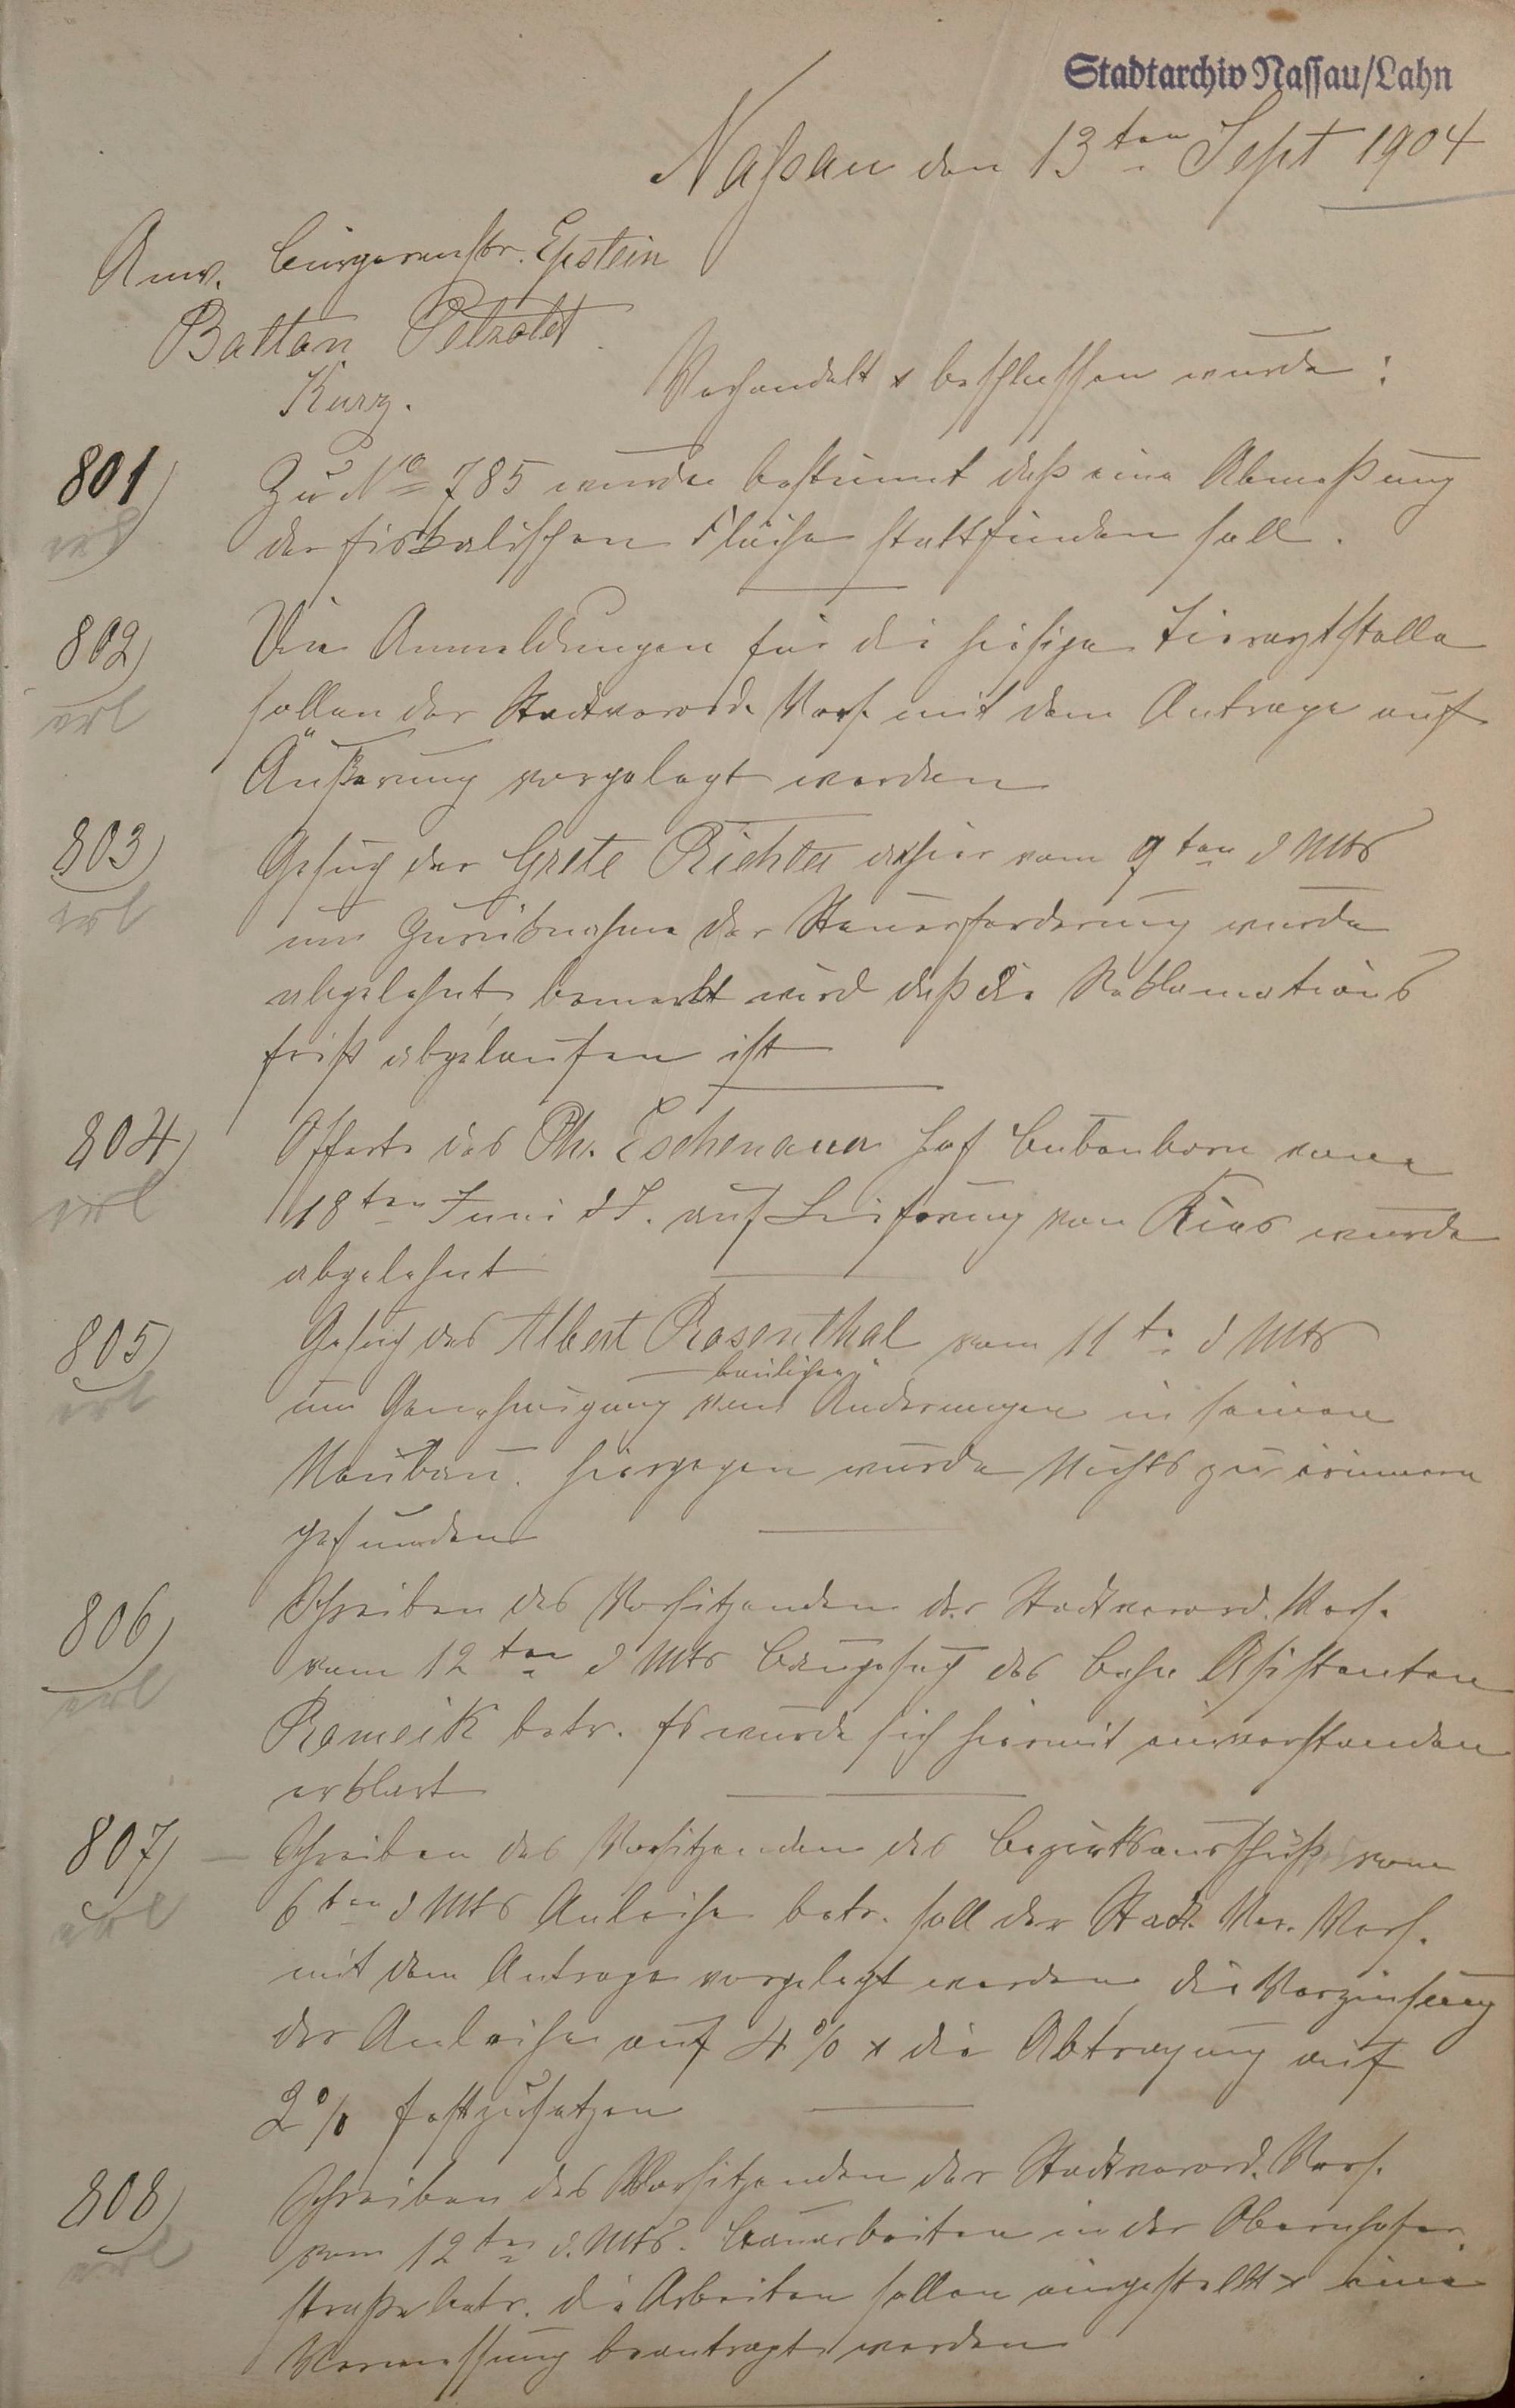 Stadtarchiv Nassau/Lahn
Nassau den 13ten Sept 1904
Anw. Bürgermstr. Epstein
Balzar Petzoldt
Kurz.
Verhandelt & beschlossen wurde:
801) Zu No 785 wurde bestimmt daß eine Abmeßung
erl
der fiskalischen Fläche stattfinden soll.
802) Die Anmeldungen für die hiesige Tierarztstelle
erl
sollen der Stadtverord. Vers. mit dem Antrage auf
Äußerung vorgelegt werden
803) Gesuch der Grete Richter dahier vom 9ten d Mts
erl
um Zurücknahme der Steuerforderung wurde
abgelehnt, bemerkt wird daß die Reklamations
frist abgelaufen ist
804) Offerte des Ph. Eschenauer Hof Bubenborn vom
erl
18ten Juni d J. auf Lieferung von Kies wurde
abgelehnt
805) Gesuch des Albert Rosenthal vom 11te d Mts
erl
um Genehmigung von baulichen Änderungen in seinem
Neubau. Hiergegen wurde Nichts zu erinnern
gefunden
806) Schreiben des Vorsitzenden der Stadtverord. Vers.
erl
vom 12ten d Mts Baugesuch des Bahn Assistenten
Rameik betr. Es wurde sich hiermit einverstanden
erklärt
807) Schreiben des Vorsitzenden des Bezirksausschuß vom
erl
6ten d Mts Anleihe betr. soll der Stadt. Ver. Vers.
mit dem Antrage vorgelegt werden, die Verzinsung
der Anleihe auf 4% & die Abtragung auf
2% festzusetzen
808) Schreiben des Vorsitzenden der Stadtverord. Vers.
erl
vom 12ten d. Mts. Bauarbeiten in der Obernhofer
straße betr. die Arbeiten sollen eingestellt & eine
Vermessung beantragt werden